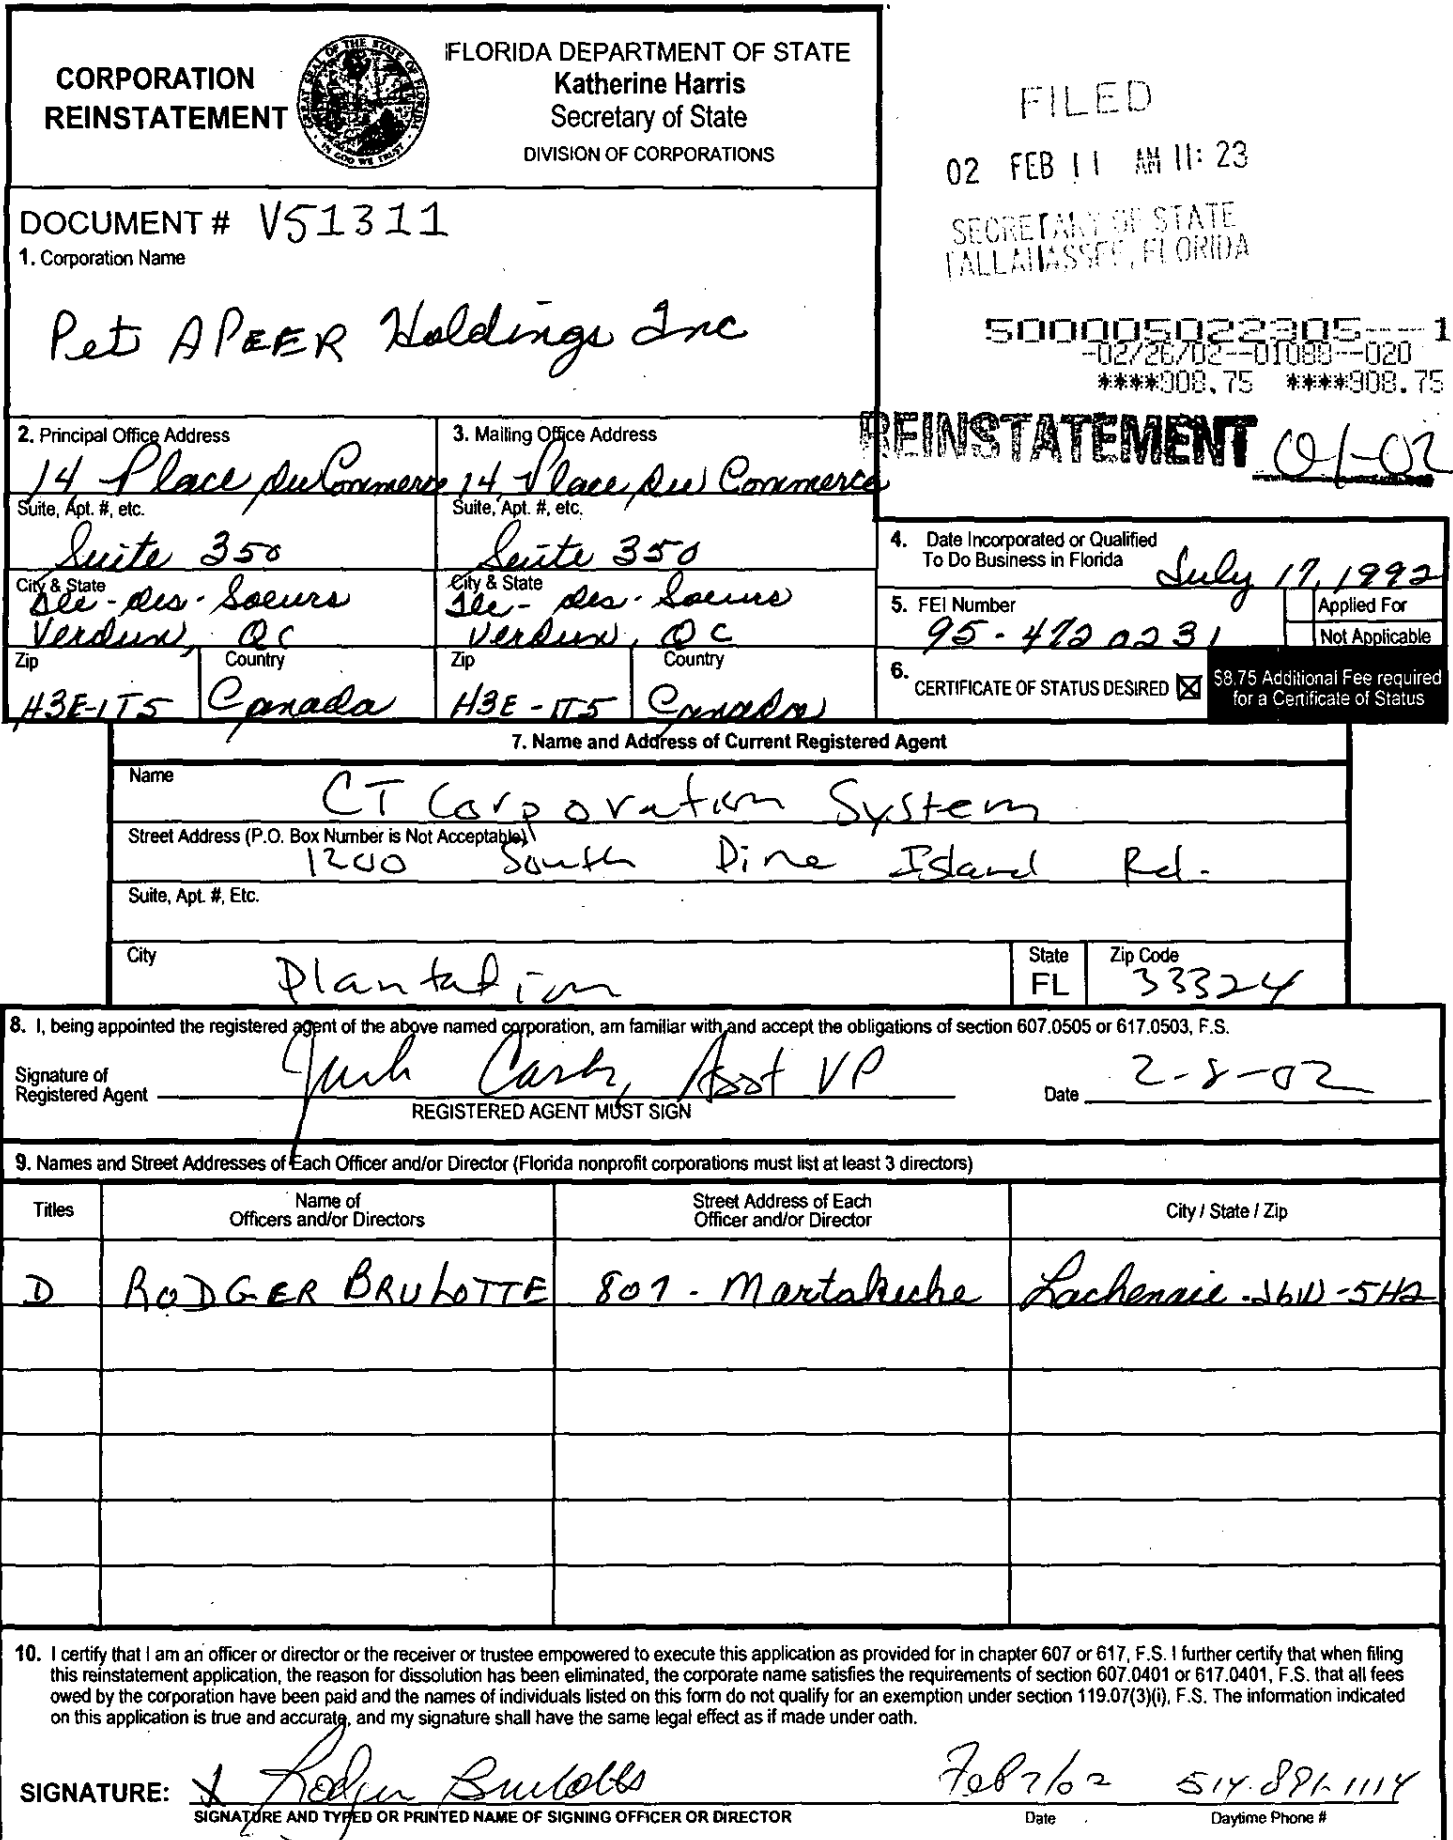 CORPORATION
REINSTATEMENT
GREAT SEAL OF THE STATE OF FLORIDA
IN GOD WE TRUST
FLORIDA DEPARTMENT OF STATE
Katherine Harris
Secretary of State
DIVISION OF CORPORATIONS
FILED
02 FEB 11 AM 11:23
SECRETARY OF STATE
TALLAHASSEE, FLORIDA
DOCUMENT # V51311
1. Corporation Name
Pet APEER Holdings Inc
500005022305---1
-02/26/02--01088--020
****908.75 ****908.75
REINSTATEMENT 01-02
2. Principal Office Address
14 Place du Commerce
Suite, Apt. #, etc.
Suite 350
City & State
Ile-des-Soeurs
Verdun, QC
Zip
H3E-1T5
Country
Canada
3. Mailing Office Address
14, Place du Commerce
Suite, Apt. #, etc.
Suite 350
City & State
Ile-des-Soeurs
Verdun, QC
Zip
H3E-1T5
Country
Canada
4. Date Incorporated or Qualified
To Do Business in Florida
July 17, 1992
5. FEI Number
95-4720231
Applied For
Not Applicable
6. CERTIFICATE OF STATUS DESIRED
$8.75 Additional Fee required
for a Certificate of Status
7. Name and Address of Current Registered Agent
Name
CT Corporation System
Street Address (P.O. Box Number is Not Acceptable)
1200 South Pine Island Rd.
Suite, Apt. #, Etc.
City
Plantation
State
FL
Zip Code
33324
8. I, being appointed the registered agent of the above named corporation, am familiar with and accept the obligations of section 607.0505 or 617.0503, F.S.
Signature of
Registered Agent
Asst VP
REGISTERED AGENT MUST SIGN
Date 2-8-02
9. Names and Street Addresses of Each Officer and/or Director (Florida nonprofit corporations must list at least 3 directors)
Titles
Name of
Officers and/or Directors
Street Address of Each
Officer and/or Director
City / State / Zip
D RODGER BRULOTTE 807 - Lachenaie - J6W-5H2
10. I certify that I am an officer or director or the receiver or trustee empowered to execute this application as provided for in chapter 607 or 617, F.S. I further certify that when filing
this reinstatement application, the reason for dissolution has been eliminated, the corporate name satisfies the requirements of section 607.0401 or 617.0401, F.S. that all fees
owed by the corporation have been paid and the names of individuals listed on this form do not qualify for an exemption under section 119.07(3)(i), F.S. The information indicated
on this application is true and accurate, and my signature shall have the same legal effect as if made under oath.
SIGNATURE: X Rodger Brulotte Feb 7/02 514-891-1114
SIGNATURE AND TYPED OR PRINTED NAME OF SIGNING OFFICER OR DIRECTOR
Date
Daytime Phone #